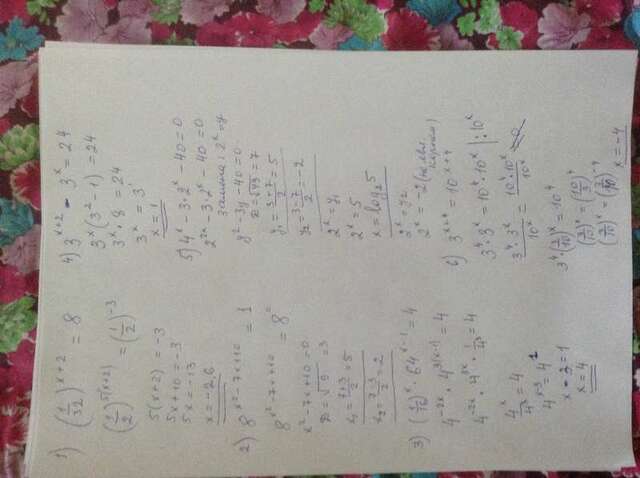 1) (1/32)^(x+2) = 8
(1/2)^(5(x+2)) = (1/2)^(-3)
5(x+2) = -3
5x+10 = -3
5x = -13
x = -2,6
2) 8^(x²-7x+10) = 1
8^(x²-7x+10) = 8°
x²-7x+10=0
D=√9=3
x₁=(7+3)/2=5
x₂=(7-3)/2=2
3) (1/16)^x · 64^(x-1) = 4
4^(-2x) · 4^(3(x-1)) = 4
4^(-2x) · 4^(3x) · 1/4³ = 4
4^x/4³ = 4
4^(x-3) = 4^1
x-3=1
x=4
4) 3^(x+2) - 3^x = 24
3^x(3²-1) = 24
3^x · 8 = 24
3^x = 3^1
x=1
5) 4^x - 3·2^x - 40=0
2^(2x) - 3·2^x - 40=0
замена: 2^x=y
y²-3y-40=0
D=√49=7
y₁=(3+7)/2=5
y₂=(3-7)/2=-2
2^x=y₁
2^x=5
x=log₂5
2^x=y₂
2^x=-2 (не явл. корнем)
6) 3^(x+4) = 10^(x+4)
3⁴·3^x = 10⁴·10^x |:10^x
(3⁴·3^x)/10^x = (10⁴·10^x)/10^x
3⁴·(3/10)^x = 10⁴
(3/10)^x = (10/3)⁴
(3/10)^x = (3/10)^(-4)
x=-4